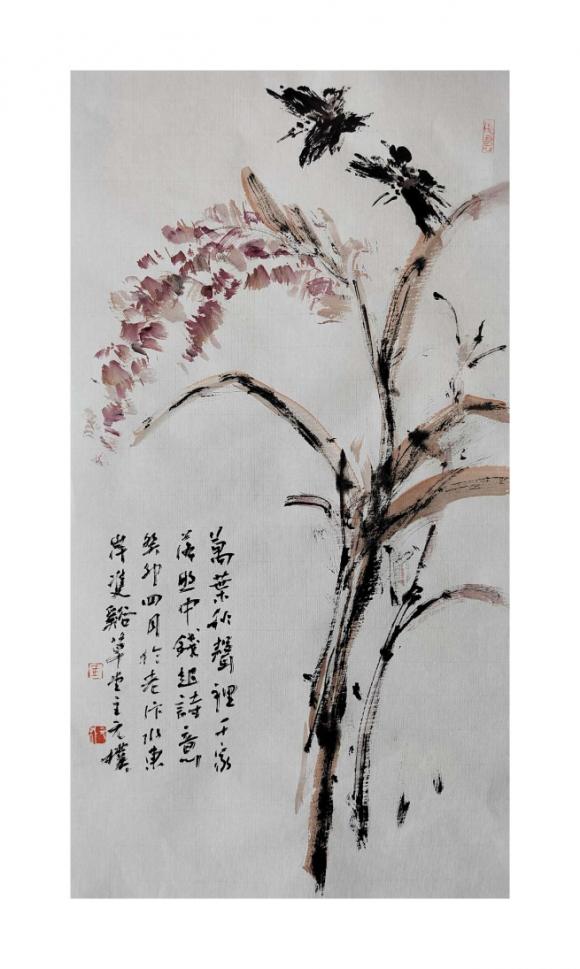 萬葉秋聲裡千家
落照中錢起詩意
癸卯四月於老汴水東
岸雙谿草堂主元樸